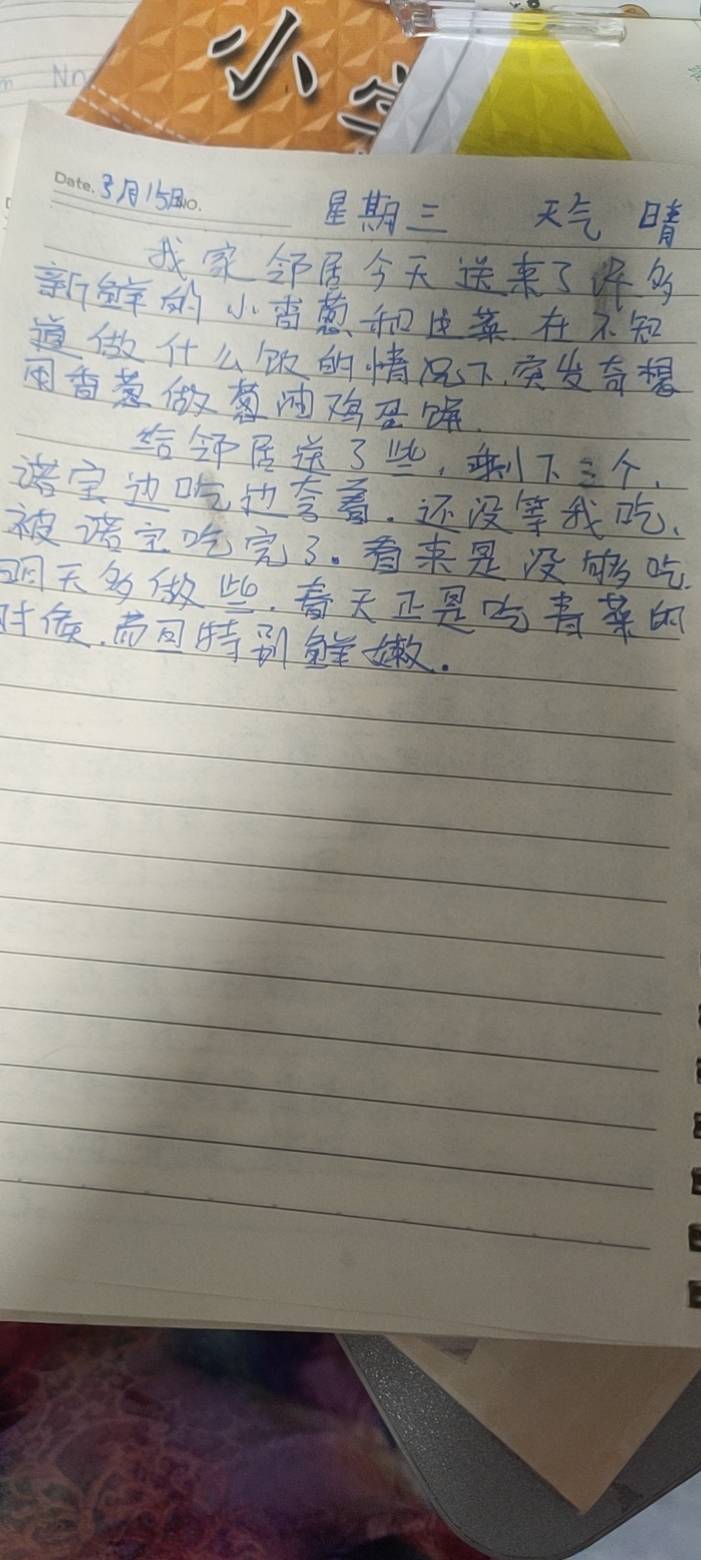 小
Nn
Date. 3月15日 No.
星期三 天气 晴
我家邻居今天送来了许多
新鲜的小香葱和生菜.在不知
道做什么饭的情况下.突发奇想
用香葱做葱油鸡蛋饼.
给邻居送了些,剩下三个.
诺宝边吃边夸着.还没等我吃、
被诺宝吃完了.看来是没够吃.
明天多做些.春天正是吃青菜的
时候.而且特别鲜嫩.